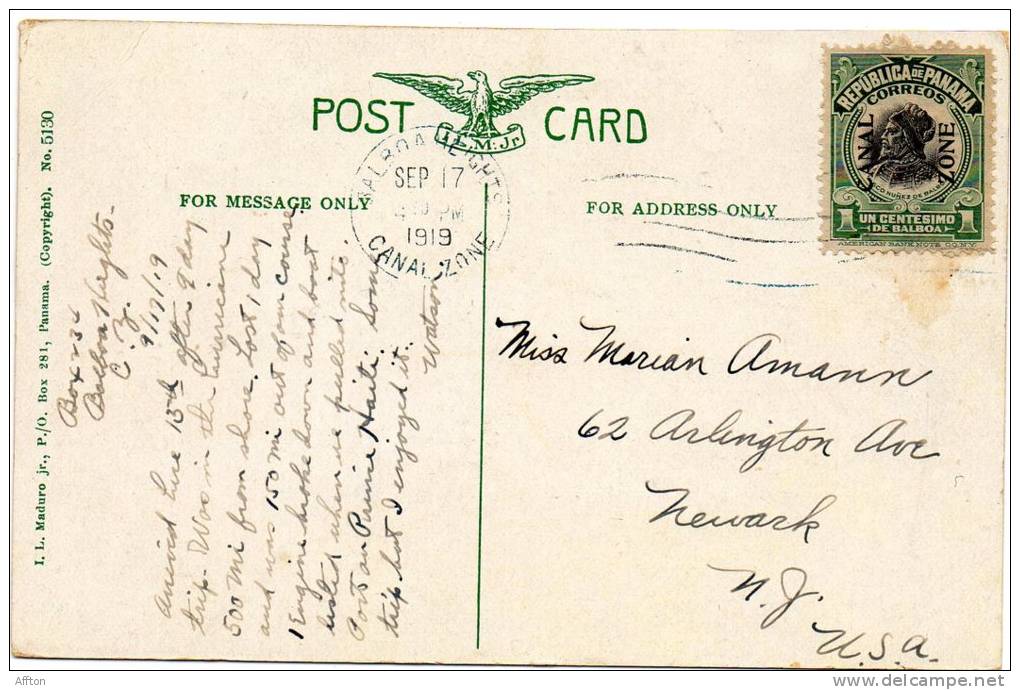 POST CARD
I.L.M. Jr.
FOR MESSAGE ONLY
FOR ADDRESS ONLY
I. L. Maduro jr., P./O. Box 281, Panama. (Copyright). No. 5130
BALBOA HEIGHTS
SEP 17
PM
1919
CANAL ZONE
REPUBLICA DE PANAMA
CORREOS
CANAL ZONE
1 UN CENTESIMO 1
DE BALBOA
AMERICAN BANK NOTE CO. N.Y.
Box 236
Balboa Heights-
C. Z.
9/17/19
Arrived here 15th after 9 day
trip. Was in the hurricane
500 mi from shore. Lost 1 day
and was 150 mi out of our course.
1 Engine broke down and boat
listed when we pulled into
Port au Prince Haiti. Some
trip but I enjoyed it..
Watson
Miss Marian Amann
62 Arlington Ave
Newark
N.J.
U.S.A.
Affton
www.delcampe.net